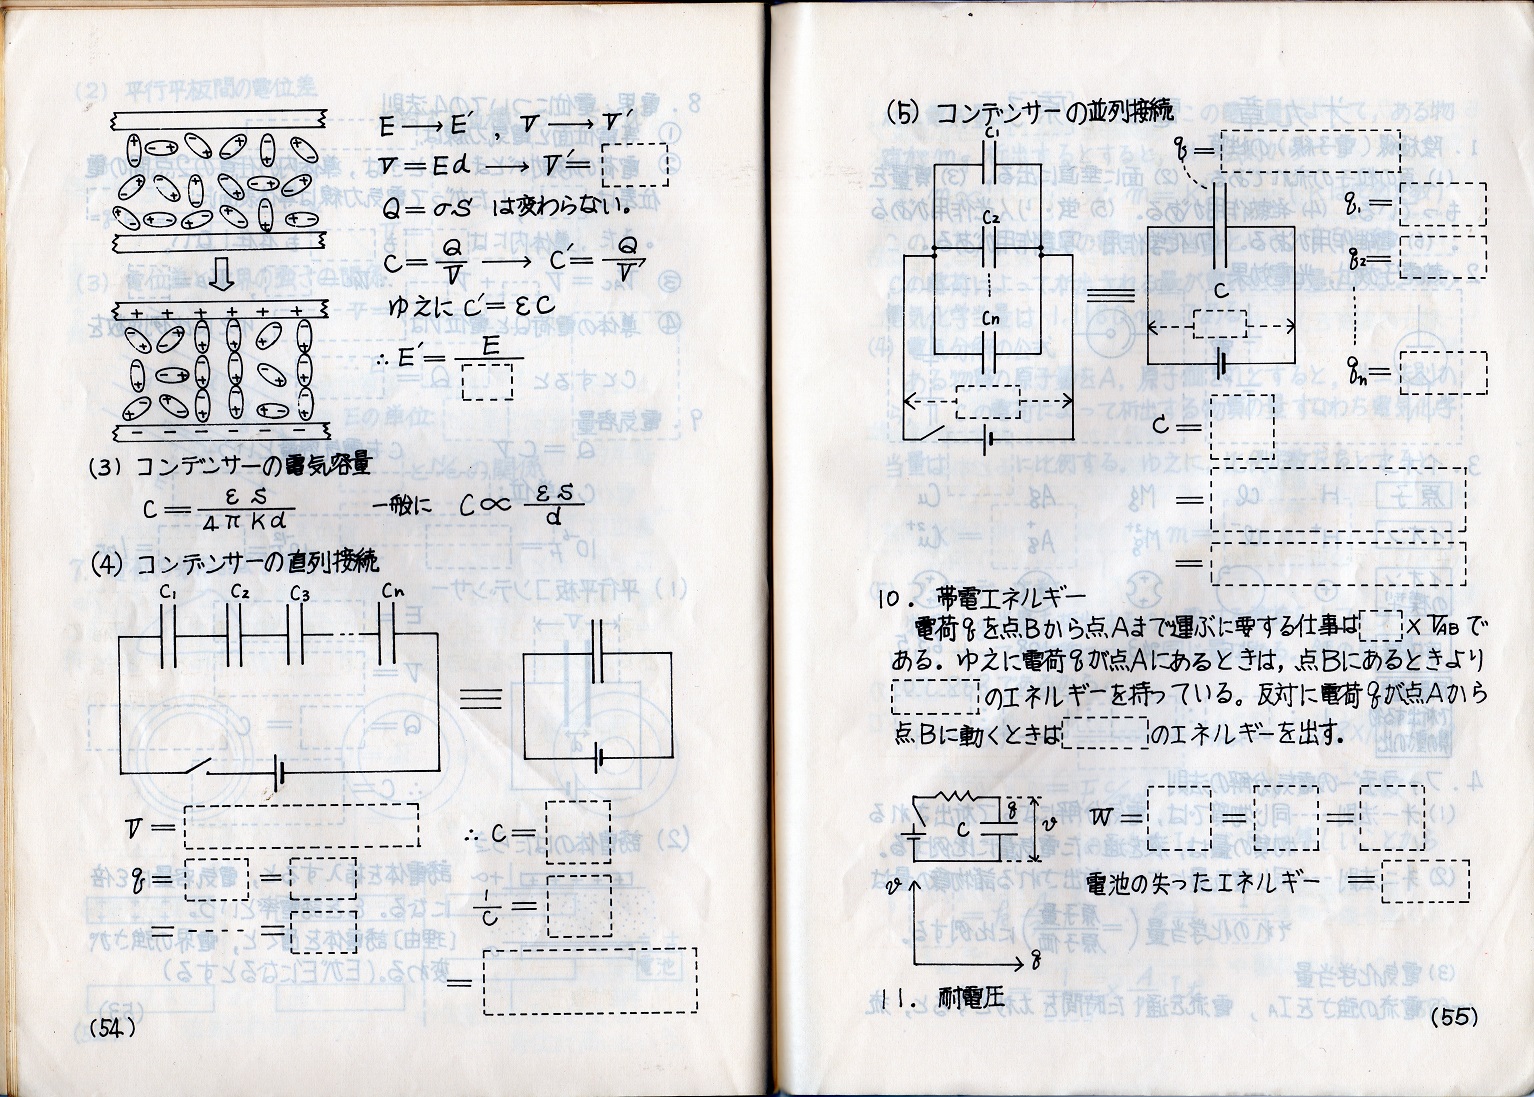 E → E′ , V → V′
V = Ed → V′ =
Q = σS は変わらない。
C = Q/V → C′ = Q/V′
ゆえに C′ = εC
∴ E′ = E/
(3) コンデンサーの電気容量
C = εS/4πkd 一般に C ∝ εS/d
(4) コンデンサーの直列接続
C₁ C₂ C₃ Cn
V =
q = =
= ---- =
∴ C =
1/C =
=
(54)
(5) コンデンサーの並列接続
C₁
C₂
Cn
q =
q₁ =
q₂ =
qn =
C
C =
=
=
10. 帯電エネルギー
電荷qを点Bから点Aまで運ぶに要する仕事は × VABで
ある. ゆえに電荷qが点Aにあるときは, 点Bにあるときより
のエネルギーを持っている。反対に電荷qが点Aから
点Bに動くときは のエネルギーを出す.
C q v
W = = =
電池の失ったエネルギー =
v
q
11. 耐電圧
(55)